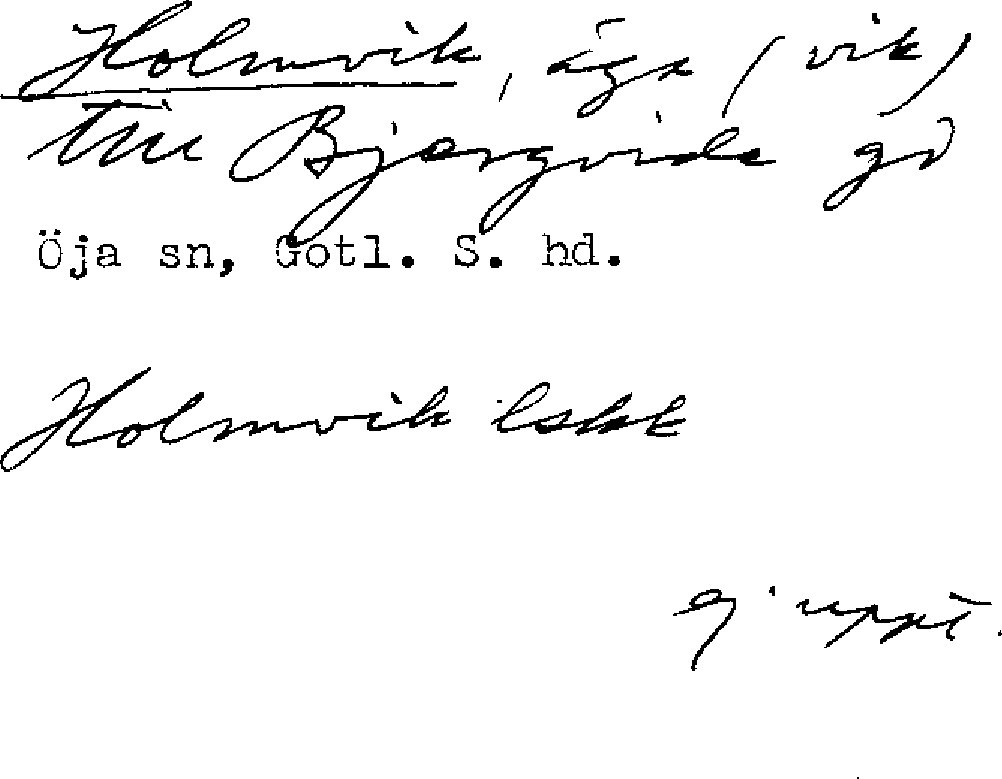 Holmvik, äga (vik)
till Bjärgvide gd
Öja sn, Gotl. S. hd.
Holmvik lskk
ej uppt.